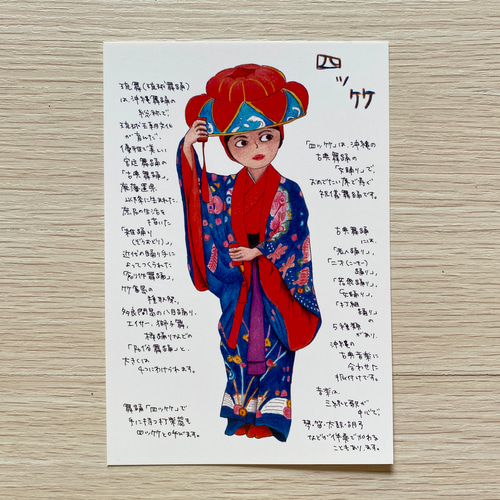 四ツケケ
琉舞(琉球舞踊)
は、沖縄舞踊の
総称で、
琉球王朝文化
が育んだ、
優雅で美しい
宮廷舞踊の
「古典舞踊」、
廃藩置県
以降に生まれた、
庶民の生活を
描いた
「雑踊り
(ぞうおどり)」、
近代の踊り手に
よってつくられた
「創作舞踊」、
竹富島の
種取祭、
多良間島の八月踊り、
エイサー、獅子舞、
棒踊りなどの
「民俗舞踊」と、
大きくは
4つにわけられます。
舞踊「四ツ竹」で
手に持つ打楽器を
四ツ竹と呼びます。
「四ツ竹」は、沖縄の
古典舞踊の
「女踊り」で、
おめでたい席で寿ぐ
祝儀舞踊です。
古典舞踊
には、
「老人踊り」、
「二才(ニーセー)
踊り」、
「若衆踊り」、
「女踊り」、
「打組
踊り」の
5種類が
あり、
沖縄の
古典音楽に
合わせた
振付けです。
音楽は、
三線と歌が
中心で、
箏・笛・太鼓・胡弓
などが伴奏で加わる
こともあります。